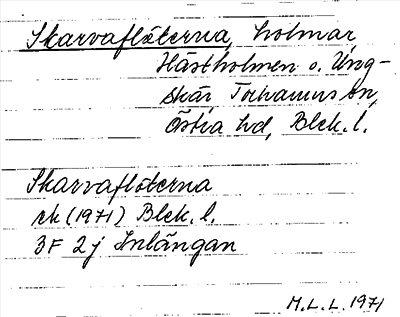 Skarvaflöterna, holmar
Hästholmen o. Ung-
skär Torhamns sn,
Östra hd, Blek. l.
Skarvaflöterna
ek (1971) Blek. l.
3F 2j Inlängan
M.L.L. 1971